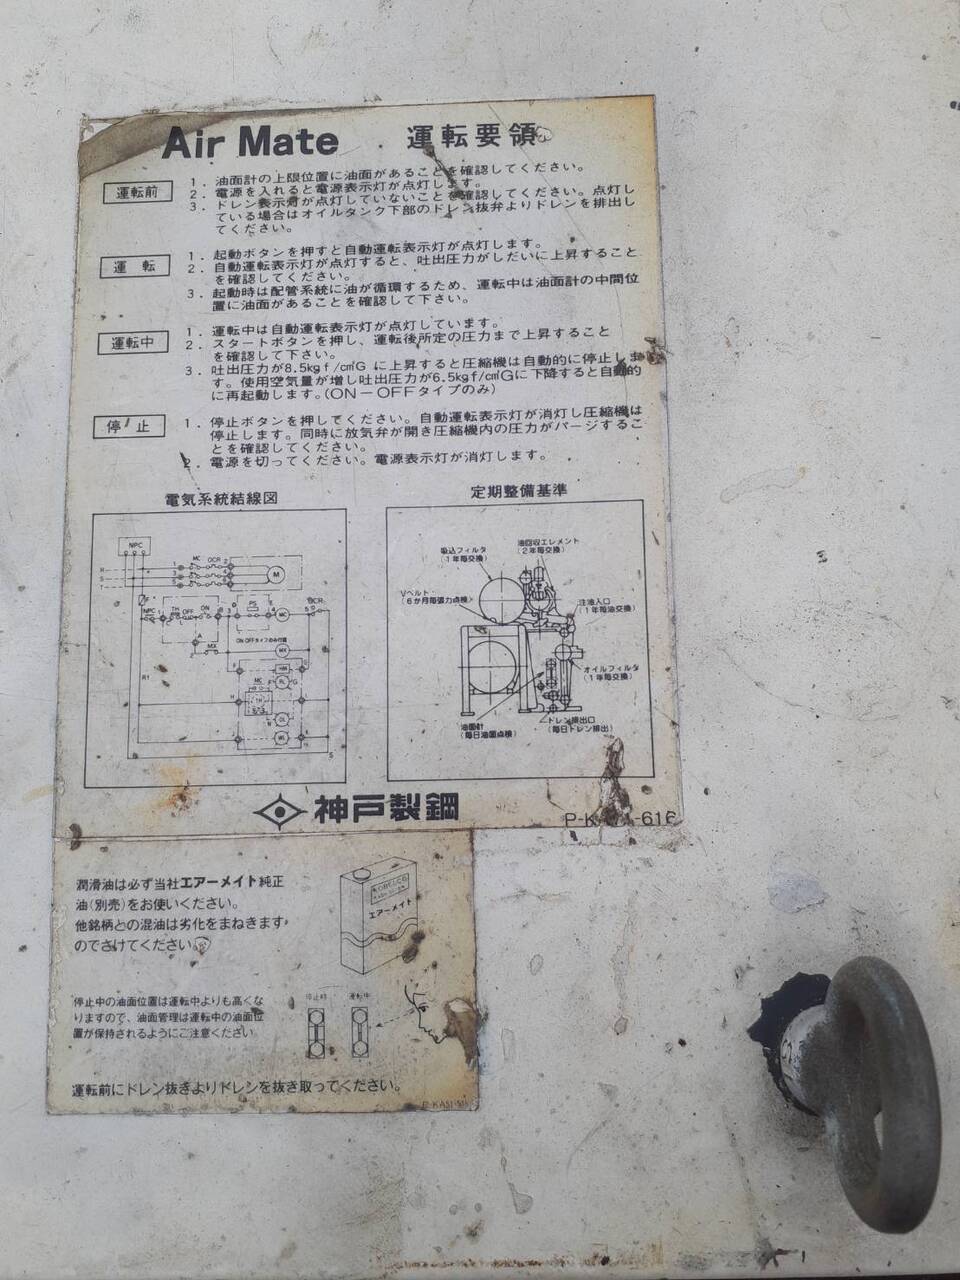 Air Mate 運転要領
運転前
1. 油面計の上限位置に油面があることを確認してください。
2. 電源を入れると電源表示灯が点灯します。
3. ドレン表示灯が点灯していないことを確認してください。点灯し
ている場合はオイルタンク下部のドレン抜弁よりドレンを排出し
てください。
運転
1. 起動ボタンを押すと自動運転表示灯が点灯します。
2. 自動運転表示灯が点灯すると、吐出圧力がしだいに上昇すること
を確認してください。
3. 起動時は配管系統に油が循環するため、運転中は油面計の中間位
置に油面があることを確認して下さい。
運転中
1. 運転中は自動運転表示灯が点灯しています。
2. スタートボタンを押し、運転後所定の圧力まで上昇すること
を確認して下さい。
3. 吐出圧力が8.5kgf/c㎡Gに上昇すると圧縮機は自動的に停止しま
す。使用空気量が増し吐出圧力が6.5kgf/c㎡Gに下降すると自動的
に再起動します。(ON－OFFタイプのみ)
停止
1. 停止ボタンを押してください。自動運転表示灯が消灯し圧縮機は
停止します。同時に放気弁が開き圧縮機内の圧力がパージするこ
とを確認してください。
2. 電源を切ってください。電源表示灯が消灯します。
電気系統結線図
NPC
MC OCR
R
S
T
M
F
NPC
TH OFF ON
PS
MC
OCR
A
MX
ON OFFタイプのみ付属
MX
HM
MC
R1
定期整備基準
吸込フィルタ
(1年毎交換)
油回収エレメント
(2年毎交換)
Vベルト
(6か月毎張力点検)
注油入口
(1年毎油交換)
オイルフィルタ
(1年毎交換)
油面計
(毎日油面点検)
ドレン排出口
(毎日ドレン排出)
神戸製鋼
潤滑油は必ず当社エアーメイト純正
油(別売)をお使いください。
他銘柄との混油は劣化をまねきます
のでさけてください
KOBELCO
エアーメイト
停止中の油面位置は運転中よりも高くな
りますので、油面管理は運転中の油面位
置が保持されるようにご注意ください
停止時 運転中
運転前にドレン抜きよりドレンを抜き取ってください。